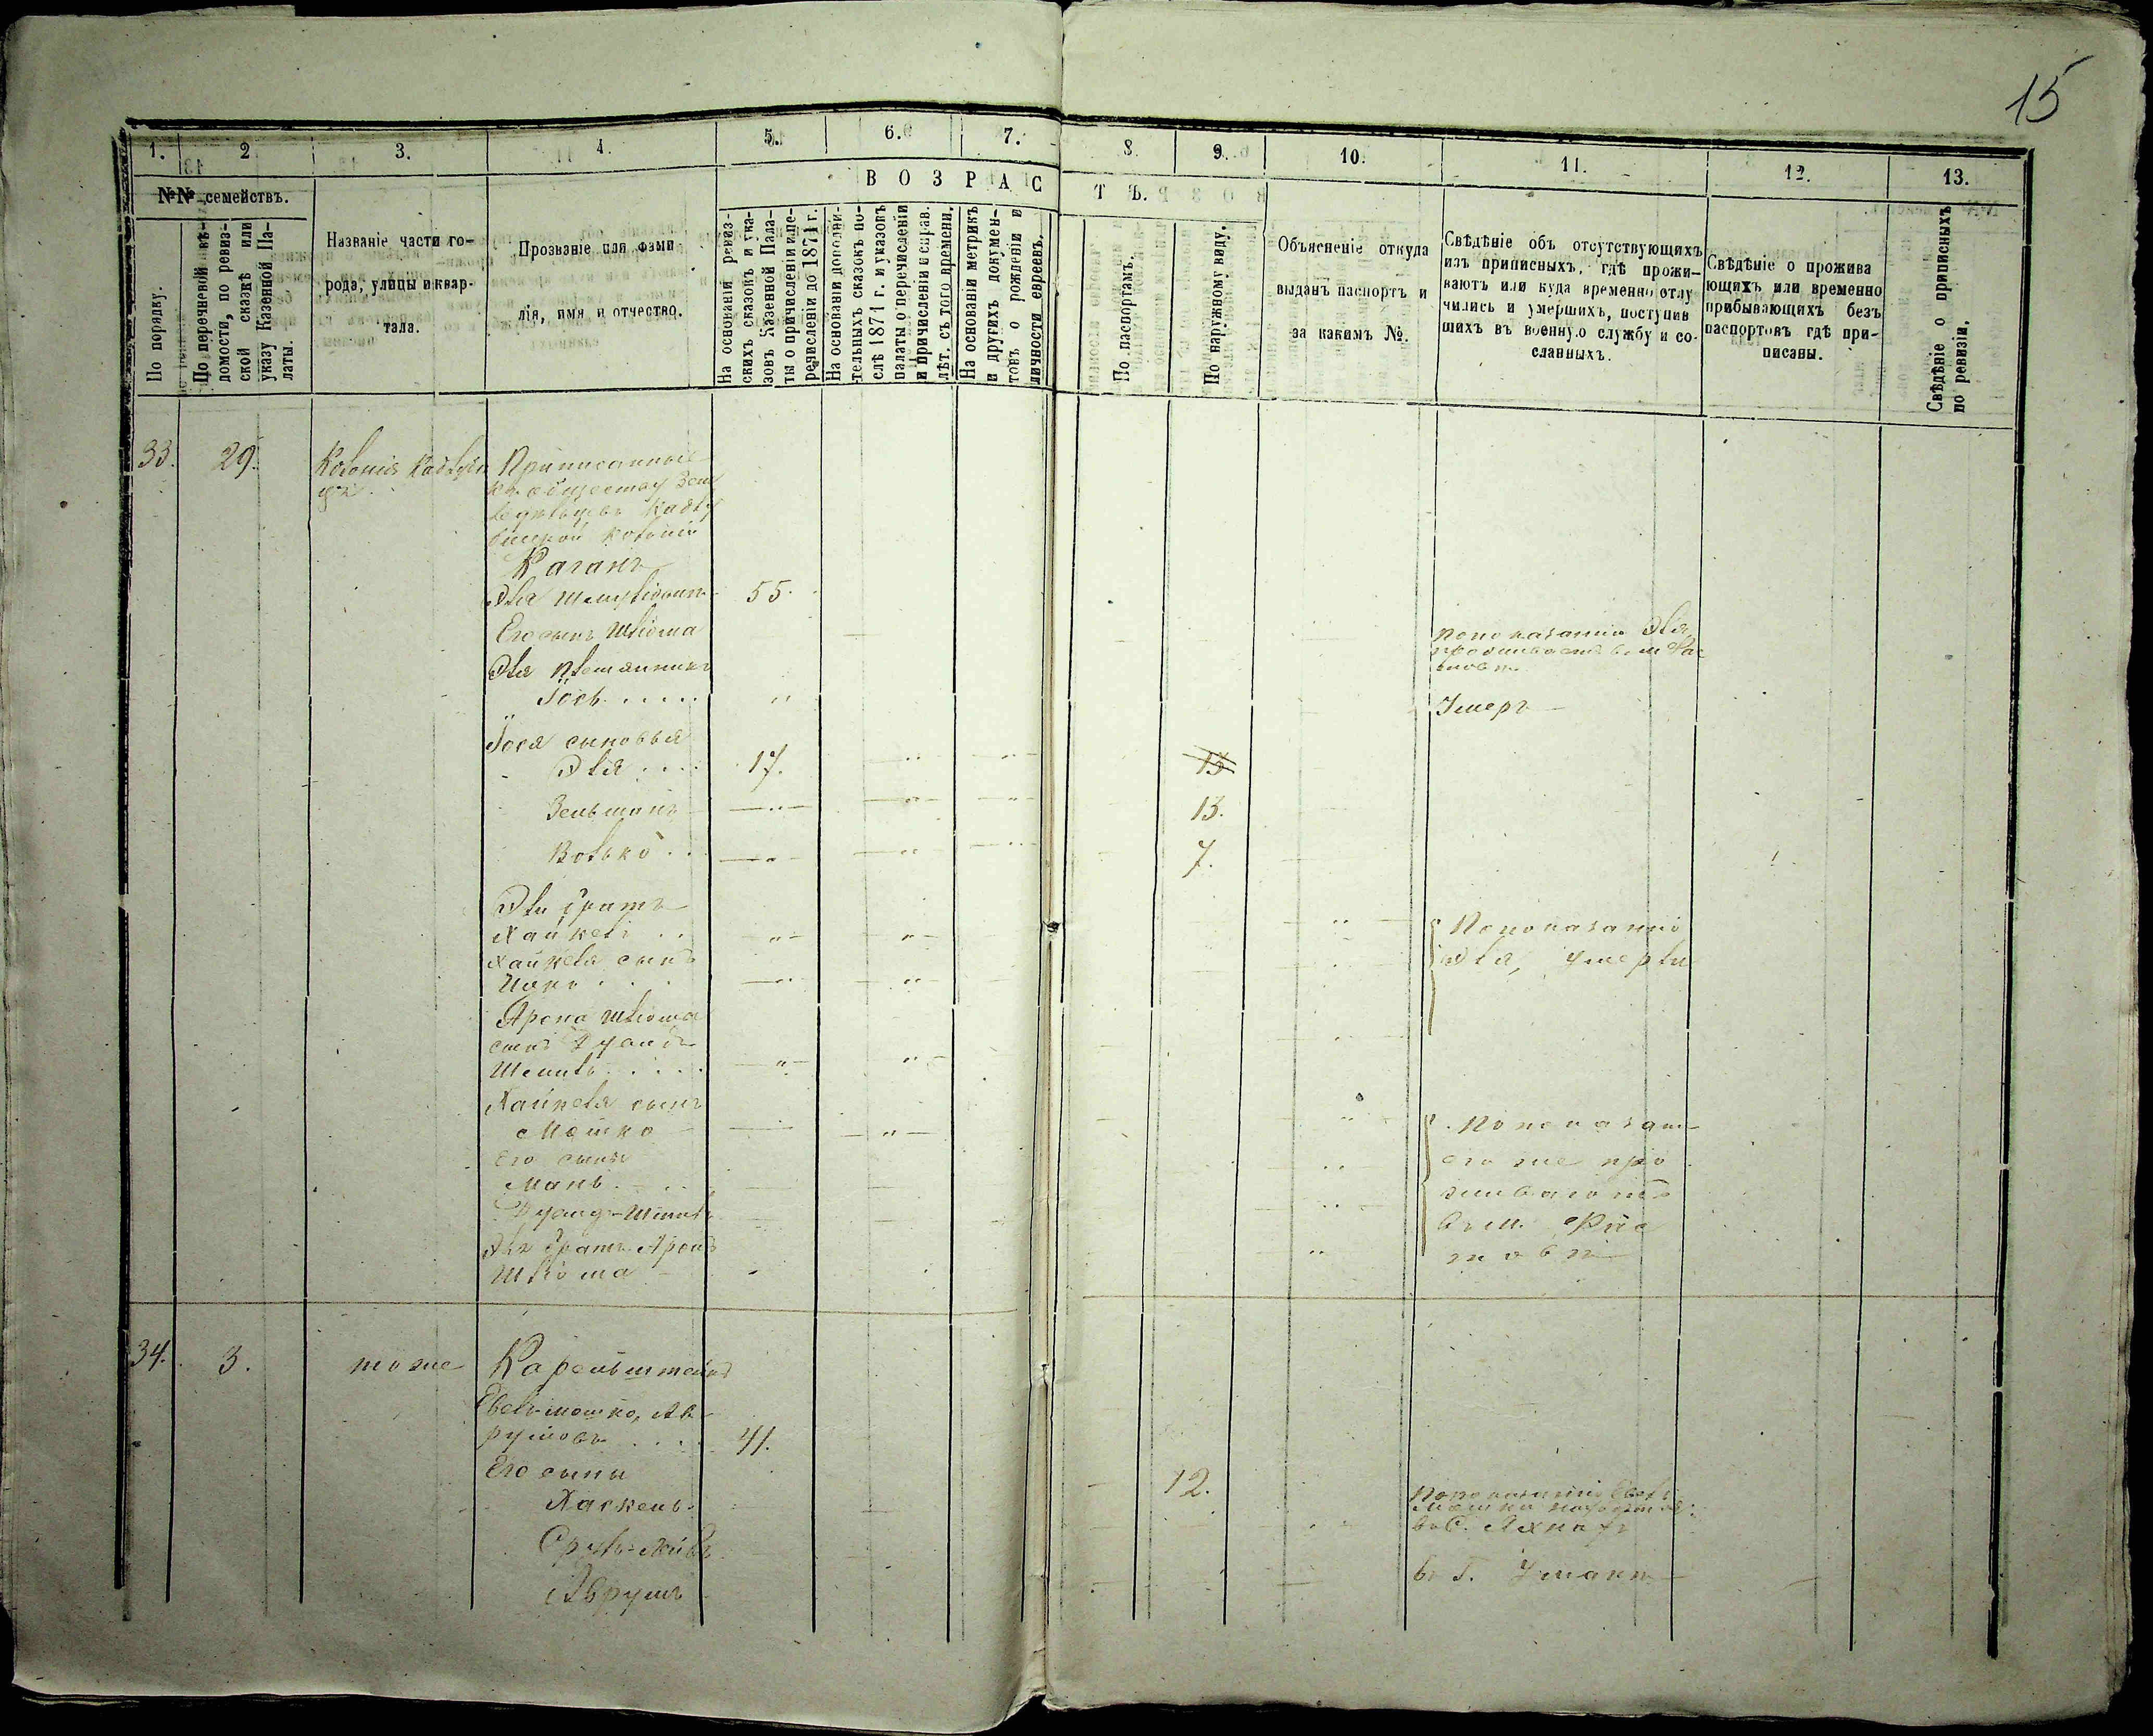 15
1. 2 3. 4. 5. 6. 7. 8. 9. 10. 11. 12. 13.
№№ семействъ.
ВОЗРАСТЪ.
По порядку.
По перечневой вѣ-
домости, по ревиз-
ской сказкѣ или
указу Казенной Па-
латы.
Названіе части го-
рода, улицы и квар-
тала.
Прозваніе или фами
лія, имя и отчество.
На основаніи ревиз-
скихъ сказокъ и ука-
зовъ Казенной Пала-
ты о причисленіи и пе-
речисленіи до 1871 г.
На основаніи дополни-
тельныхъ сказокъ по-
слѣ 1871 г. и указовъ
палаты о перечисленіи
и причисленіи и справ.
лѣт. съ того времени.
На основаніи метрикъ
и другихъ докумен-
товъ о рожденіи и
личности евреевъ.
По паспортамъ.
По наружному виду.
Объясненіе откуда
выданъ паспортъ и
за какимъ №.
Свѣдѣніе объ отсутствующихъ
изъ приписныхъ, гдѣ прожи-
ваютъ или куда временно отлу
чились и умершихъ, поступив
шихъ въ военную службу и со-
сланныхъ.
Свѣдѣніе о прожива
ющихъ или временно
прибывающихъ безъ
паспортовъ гдѣ при-
писаны.
Свѣдѣніе о приписныхъ
по ревизіи.
33. 29. Колонія
Приписанные
къ обществу Зем
колоніи
Каганъ
Эля Шмуліовичъ 55.
Его сынъ Шліома
По показанію Эля,
проживаетъ въ м.
Эля племянникъ
Іось ..... " Умеръ
Іося сыновья
Эля .... 17. " " 15
Зельманъ " " " 13.
Волько .. " " " 7.
Эли братъ
Хайкель .. " " " По показанію
Хайкеля сынъ Эля, умерли
Ицко ... " "
Арона Шліома
сынъ "
" "
Хайкеля сынъ
Мошко " " По показан
Его сынъ " его же про
Мань " живаютъ
" въ м.
Эли братъ Аронъ
Шліома "
34. 3. тоже Каренъштейнъ
Евель-мошко, Ав-
румовъ ... 41.
Его сыны
Хаскель 12. По показанію Евель
Мошки находится
въ С.
Сруль-Лейбъ
Аврумъ въ Г. Умани